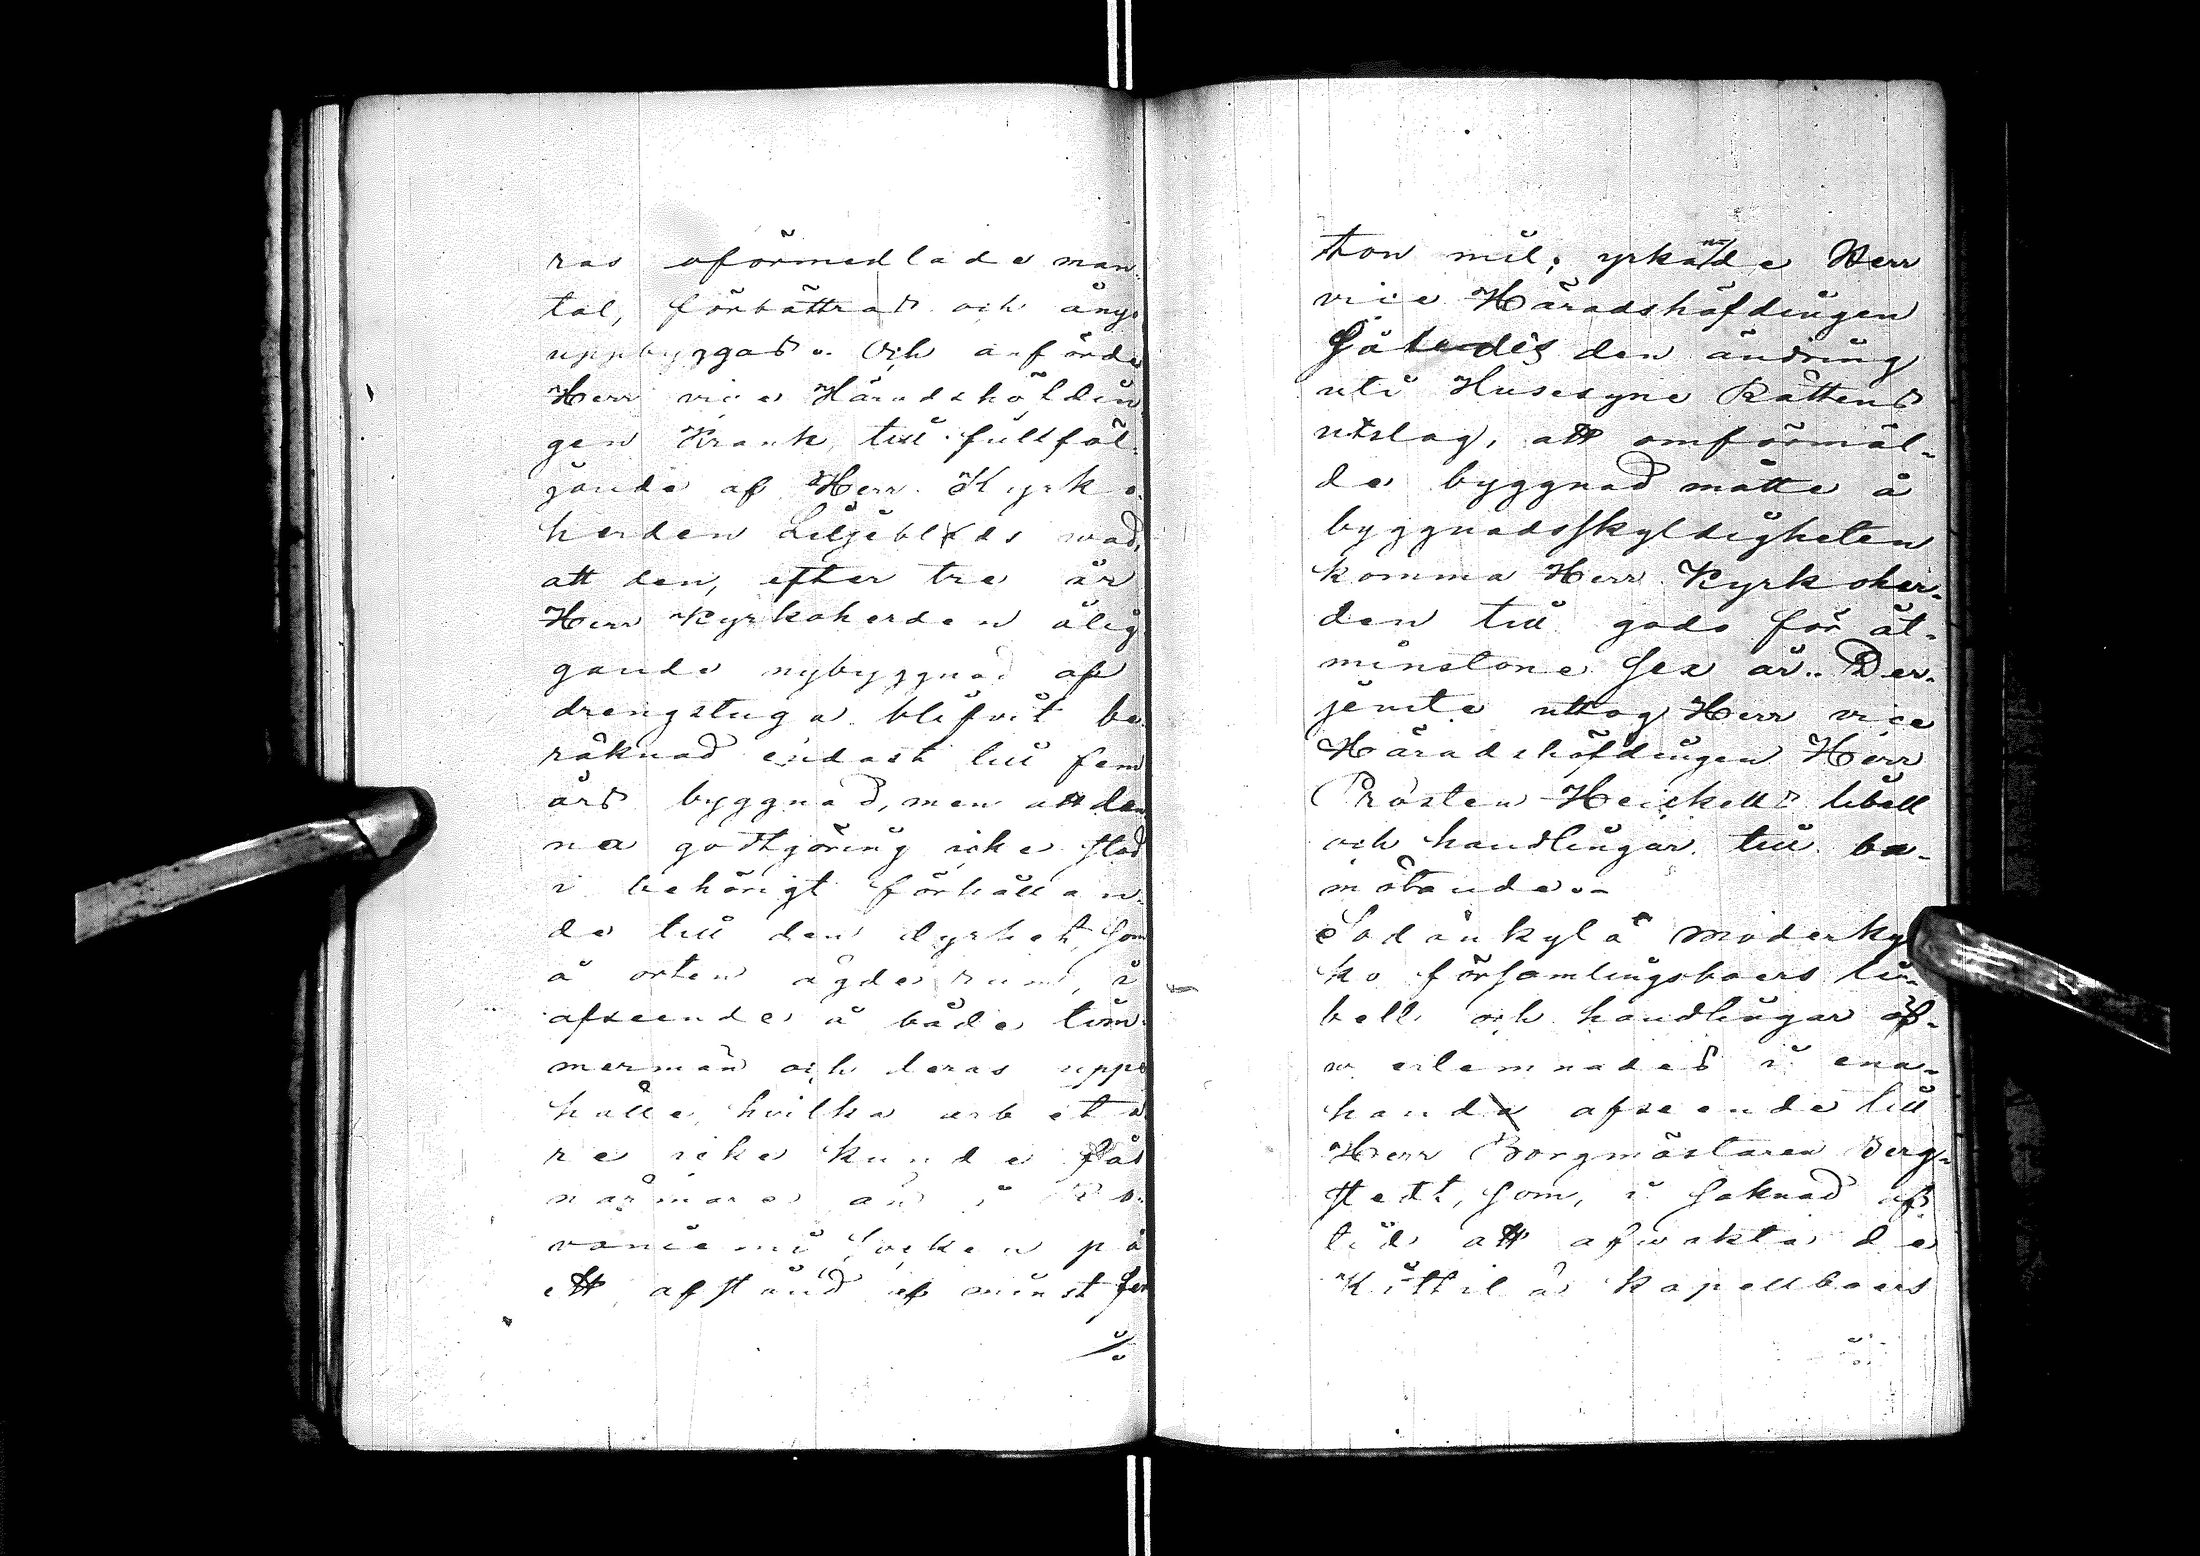 ras oförmedlade man-
tal, förbättras och ånyo
uppbyggas. Och anförde
Herr vice Häradshöfdin
gen Krank, till fullföl-
jande af Herr Kyrko-
herden Liljeblads wad,
att den, efter tre år
Herr Kyrkoherden ålig
gande nybyggnad af
drengstuga blifvit be
räknad endast till fem
års byggnad, men att den
na godtgöring icke stod
i behörigt förhållan-
de till den dyrhet, som
å orten ägde rum, i
afseende å både tim-
mermän och deras uppe
hälle, hvilka arbeta
re icke kunde fås
närmare än i Ro-
vaniemi Socken på
ett afstånd af minst fem
ton mil; yrkande Herr
vice Häradshöfdingen
således den ändring
uti Husesyne Rättens
utslag, att omförmäl-
de byggnad måtte å
byggnadsskyldigheten
komma Herr Kyrkoher-
den till godo för åt-
minstone sex år. Der-
jemte uttog Herr vice
Häradshöfdingen Herr
Prosten Heickells libell
och handlingar till be-
mötande.-
Sodankylä moderky
ko församlingsboers li-
bell och handlingar öf-
werlemnades i ena-
handa afseende till
Herr Borgmästaren Berg-
stedt, som, i saknad af
tid att afwakta de
Kittilä kapellboers